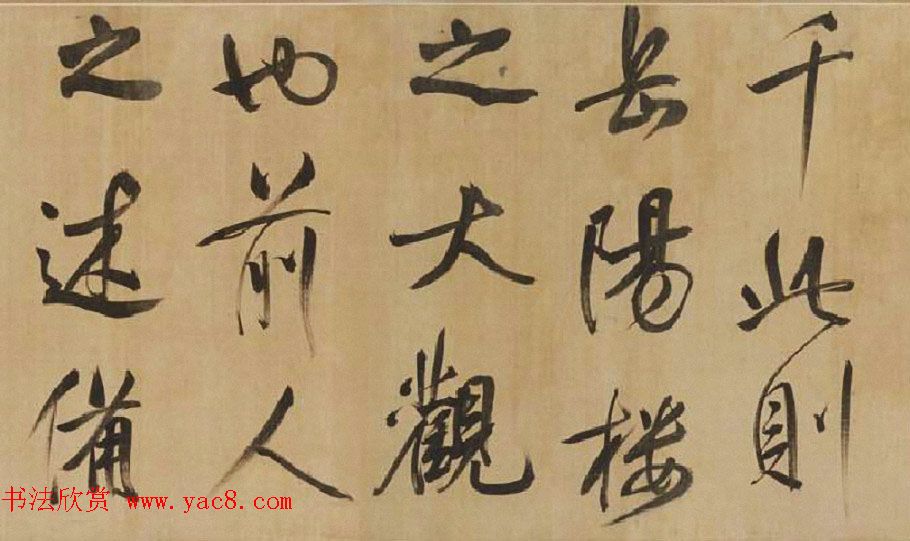 千此則
岳陽樓
之大觀
也前人
之述備
书法欣赏 www.yac8.com